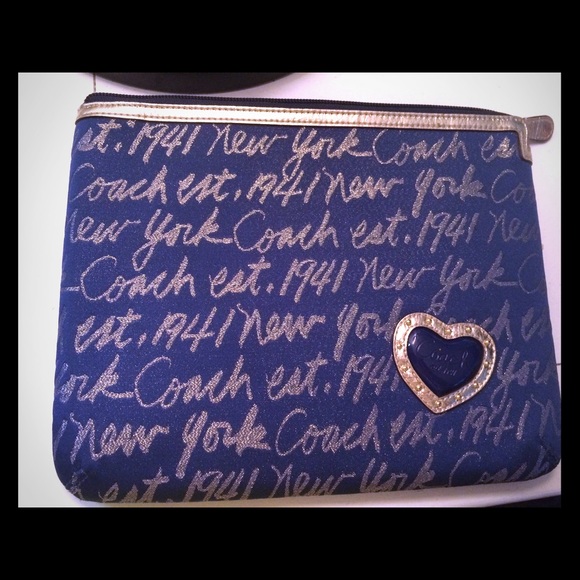 est. 1941 New York Coach es
Coach est. 1941 New York Co
ew York Coach est. 1941 New
Coach est. 1941 New York
est. 1941 New York Coach e
ork Coach est. 194
New York Coach est. 1941 New
Coach est. 1941 New York Coach